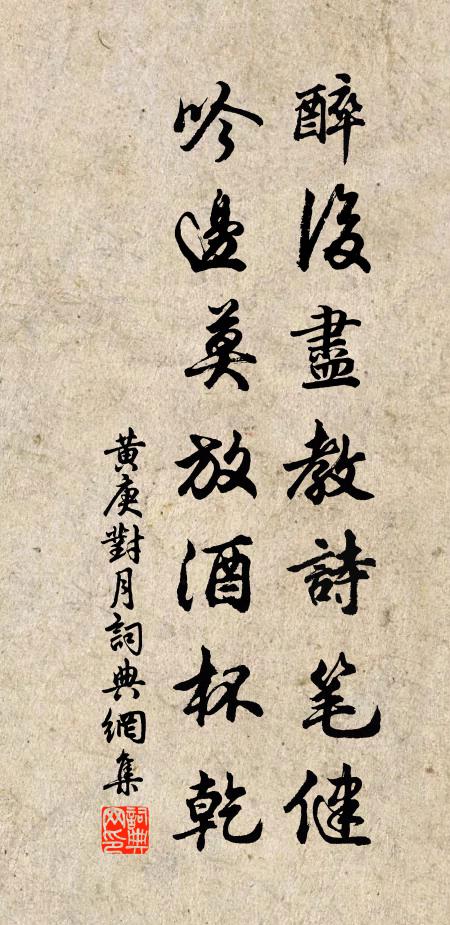 醉後盡教詩笔健
吟邊莫放酒杯乾
黃庚對月詞典網集
詞典網印